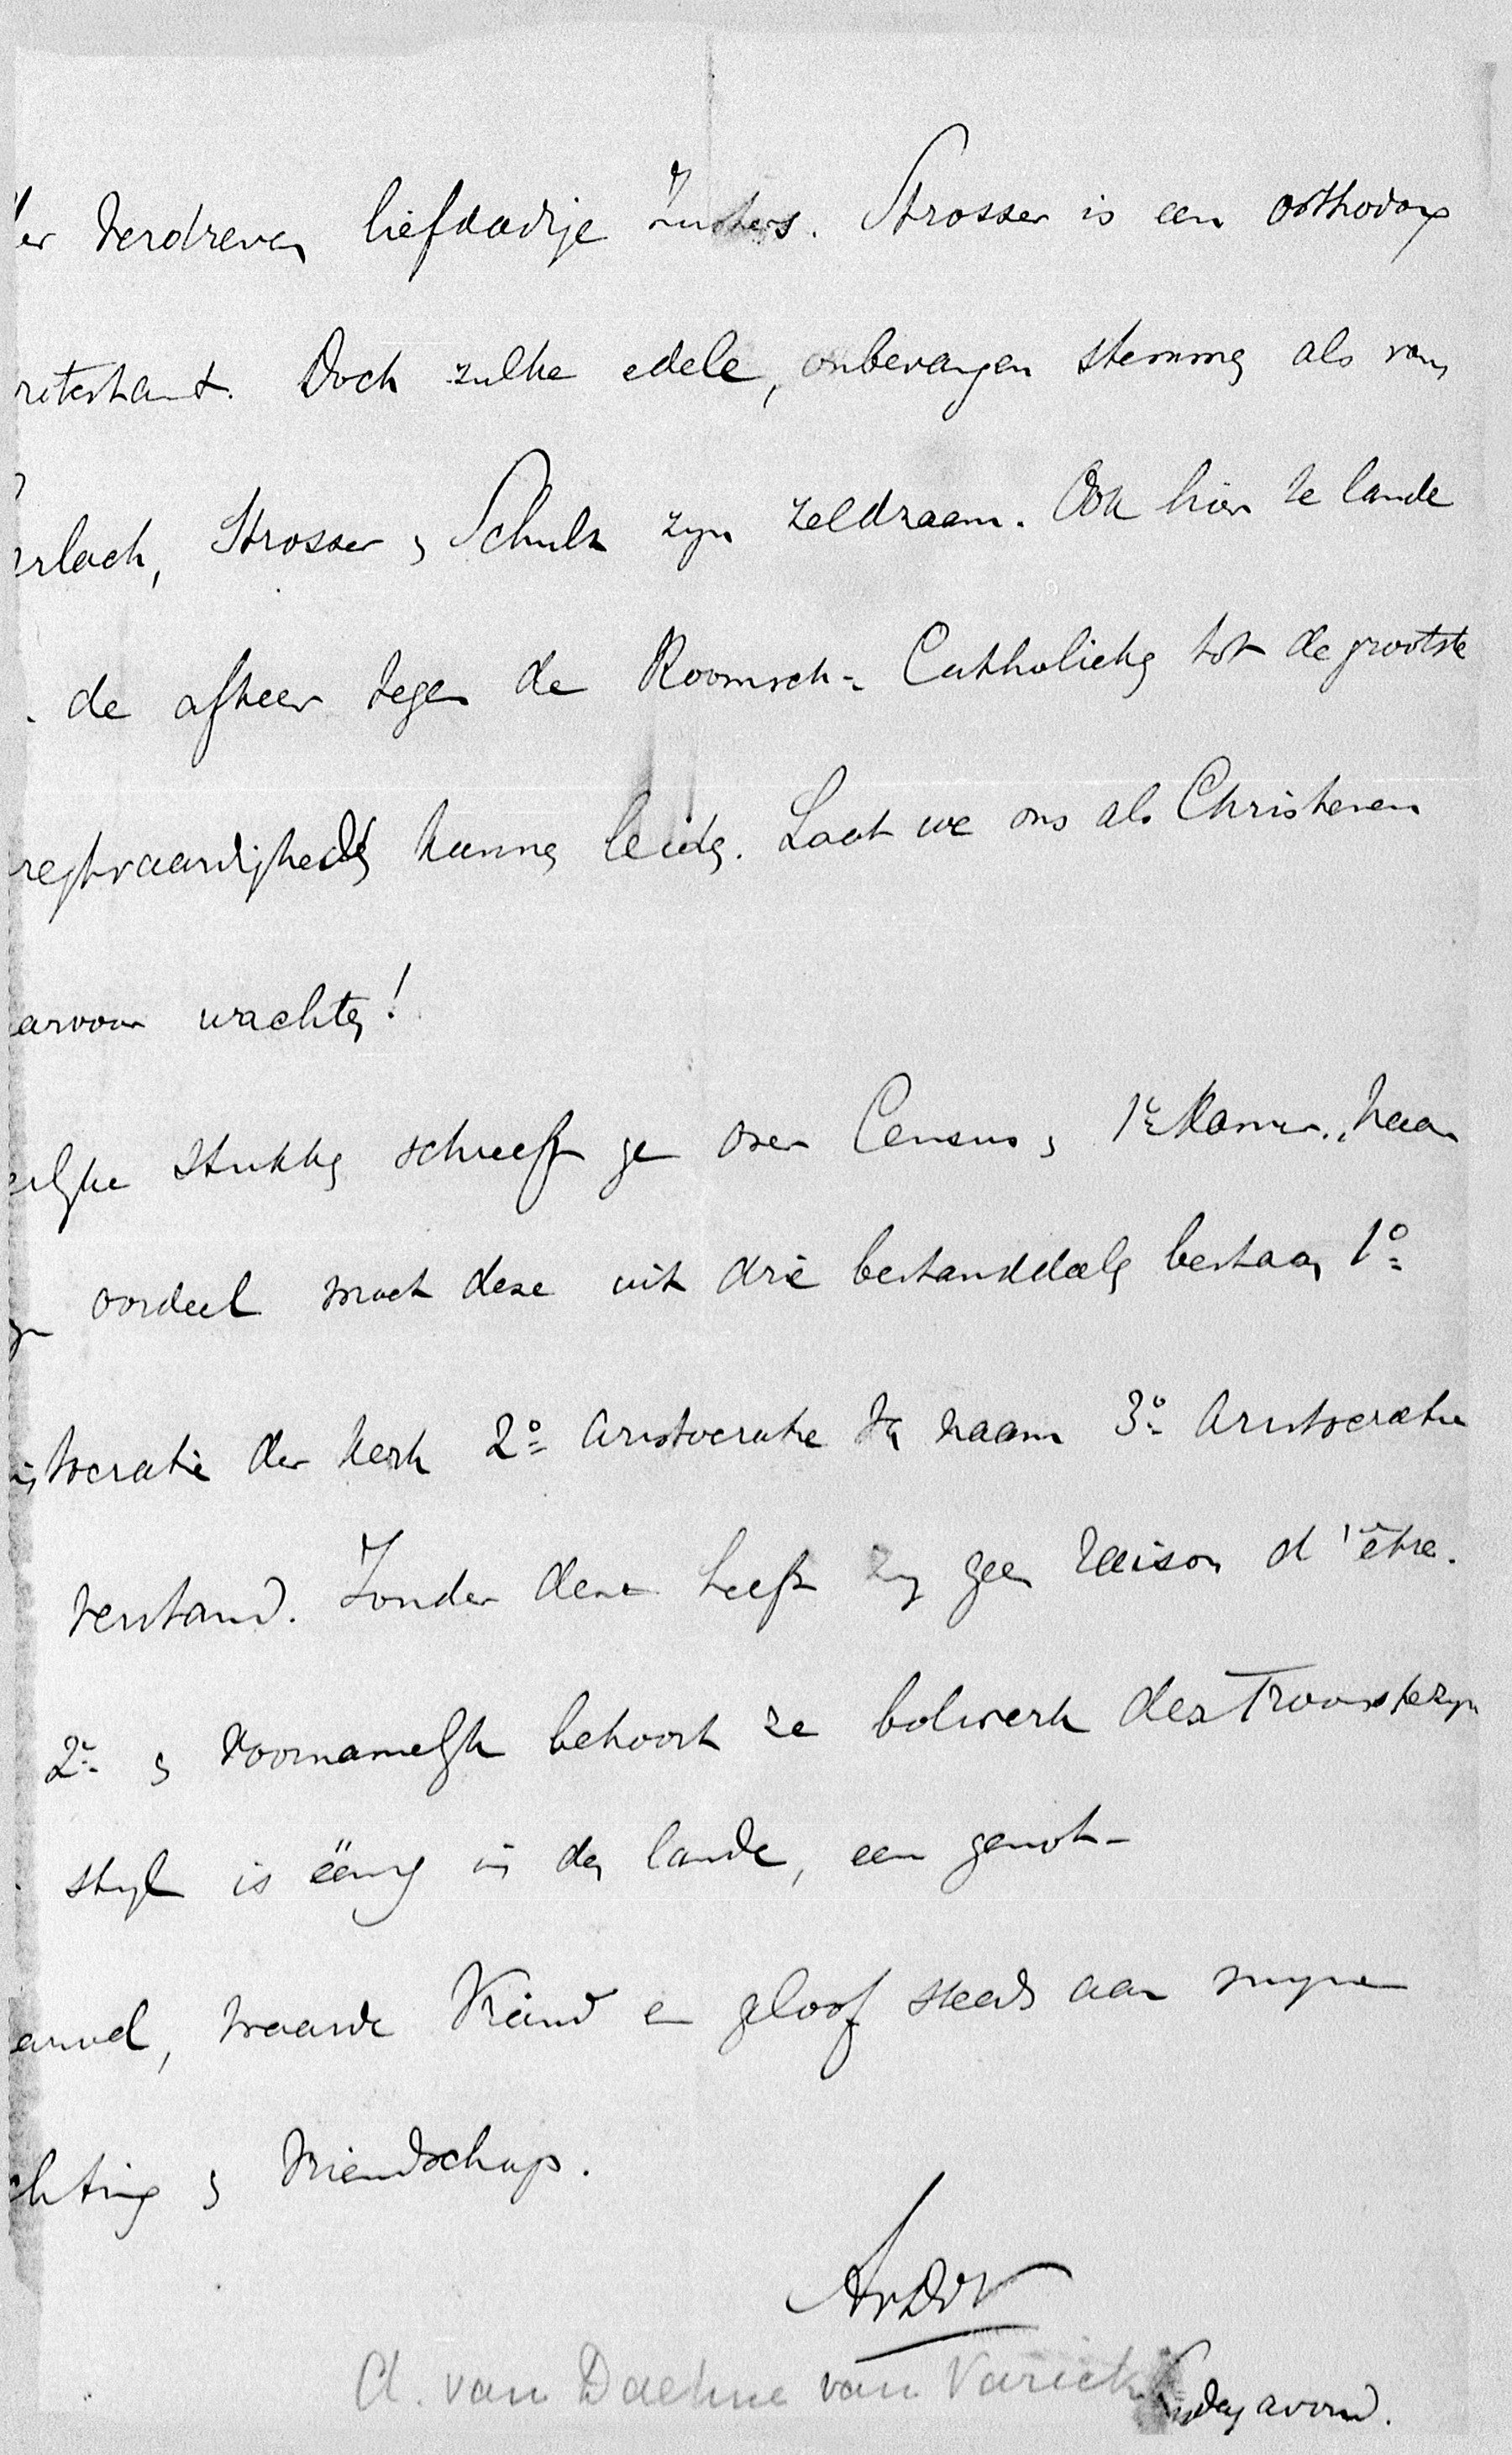 er verdreven liefdadige zusters. Strosser is een orthodox
rotestant. Doch zulke edele, onbevangen stemmen als van
erlach, Strosser en Schulz zyn zeldzaam. Ook hier te lande
de afkeer tegen de Roomsch-Catholieken tot de grootste
regtvaardigheden kunnen leiden. Laat we ons als Christenen
arvoor wachten!
erlyke stukken schreeft ge over Census en 1e Kamer. Naar
yn oordeel moet deze uit drie bestanddeelen bestaan 1o
istocratie der Kerk 2o Aristocratie van naam 3o Aristocratie
verstand. Zonder deze heeft zy geen raison d'être.
2e en voornamelyk behoort ze bolwerk des Troons te zyn
styl is éénig in den lande, een genot-
aarwel, waarde Vriend en geloof steeds aan myne
chting en Vriendschap.
AvDvV
A. van Daehne van Varick
dag avond.